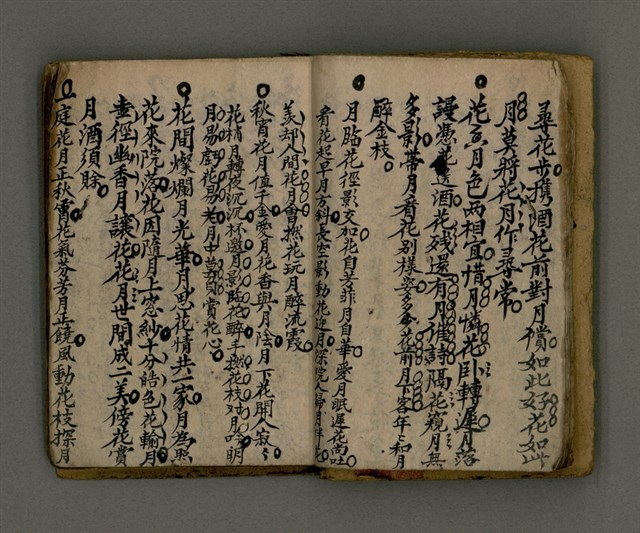 尋花步携酒花前對月償如此好花如此
月莫將花月作尋常
花言月色兩相宜惜月憐花卧轉遲月落
謾憑花送酒花殘還有月催詩隔花窺月無
多影帶月看花別樣姿多多花前月下客年年和月
醉金枝
月臨花徑影交加花自芳菲月自華愛月眠遲花尚吐
看花起早月方斜長空影動花迎月深院人歸月伴花
羡却人間花月會撚花玩月醉流霞
秋宵花月值千金愛月花香與月陰月下花開人寂寂
花梢月轉夜沉沉杯邀月影臨花醉手撚花枝對月吟明
月易虧花易老月中莫負賞花心
花間燦爛月光華月思花情共一家月為照
花來院落花因隨月上窓紗十分皓色花輸月
壹徑幽香月讓花花月世間成二美傍花賞
月酒須賒
庭花月正秋宵花氣芬芳月正鏡風動花枝探月